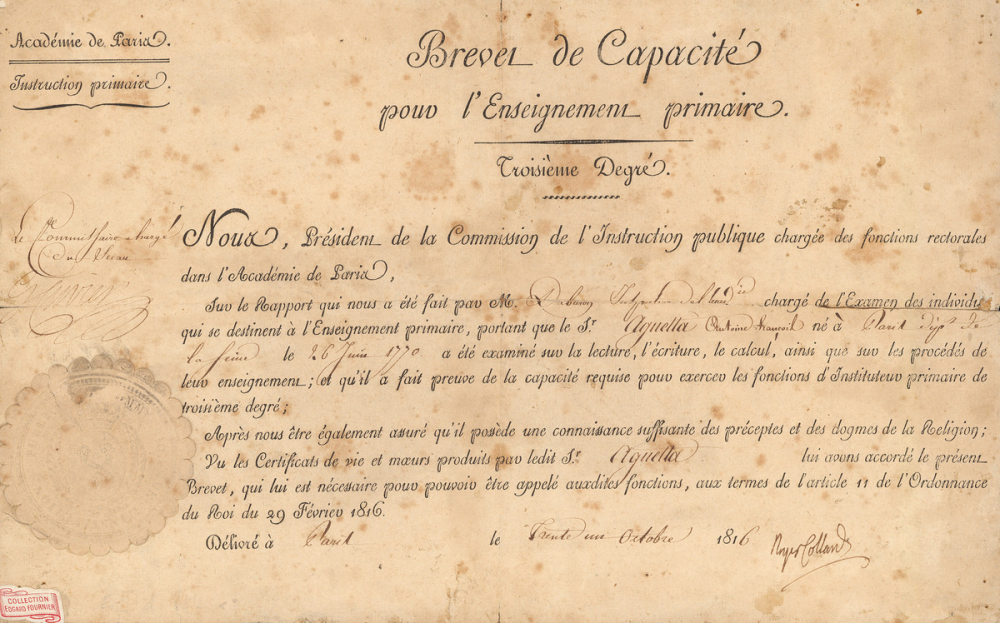 Académie de Paris.
Instruction primaire.
Brevet de Capacité
pour l'Enseignement primaire.
Troisième Degré.
Le Commissaire chargé
du Sceau
Nous, Président de la Commission de l'Instruction publique chargée des fonctions rectorales
dans l'Académie de Paris,
Sur le Rapport qui nous a été fait par M. Inspecteur de l'acad.ie chargé de l'Examen des individus
qui se destinent à l'Enseignement primaire, portant que le S.r Aguetta Antoine François né à Paris dép.t de
la Seine le 26 Juin 1770 a été examiné sur la lecture, l'écriture, le calcul, ainsi que sur les procédés de
leur enseignement; et qu'il a fait preuve de la capacité requise pour exercer les fonctions d'Instituteur primaire de
troisième degré;
Après nous être également assuré qu'il possède une connaissance suffisante des préceptes et des dogmes de la Religion;
Vu les Certificats de vie et mœurs produits par ledit S.r Aguetta lui avons accordé le présent
Brevet, qui lui est nécessaire pour pouvoir être appelé auxdites fonctions, aux termes de l'article 11 de l'Ordonnance
du Roi du 29 Février 1816.
Délivré à Paris le Trente un Octobre 1816
Royer Collard
COLLECTION
EDGARD FOURNIER